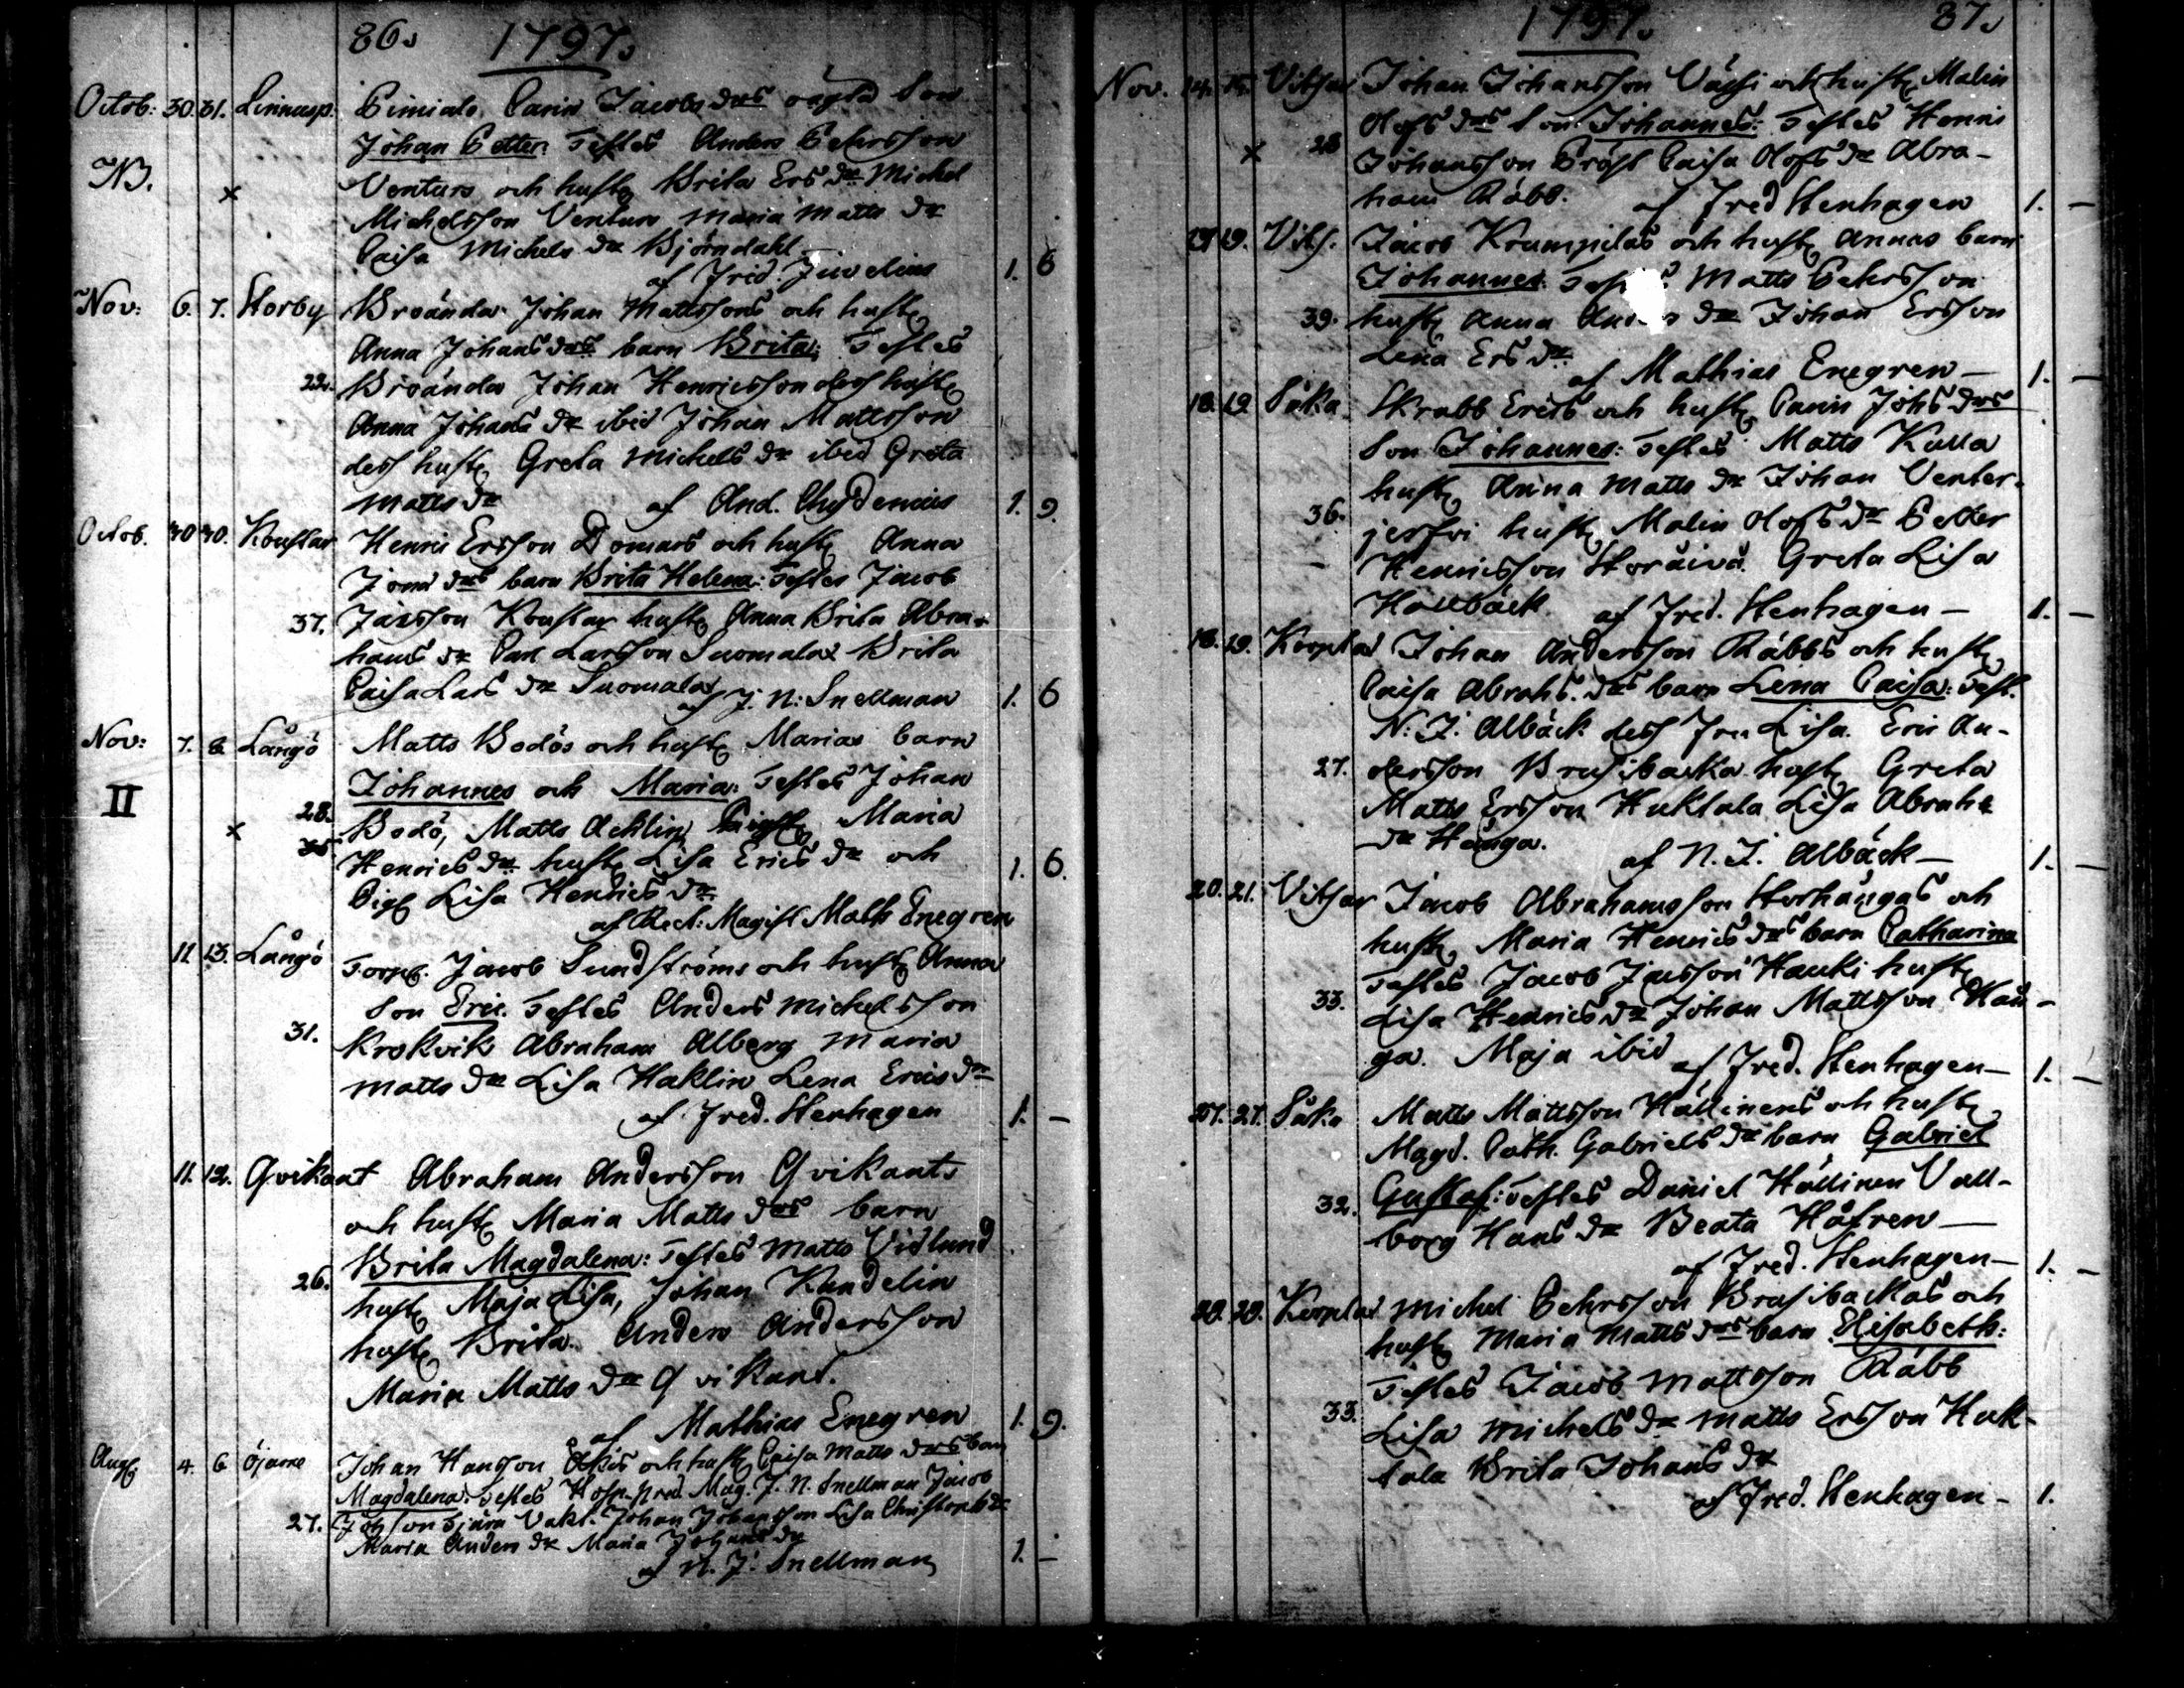 86. 1797.
Octob: 30. 31. Linnusp. Pimials Carin Jacobs drs oägta Son
Johan Petter. Testes Anders Pehrsson
NB. × Venturs och hustr Brita Ers dr Michel
Michelsson Ventura Maria Matts dr
Caisa Michels dr Björndahl
af Frid. Juvelius 1. 6
Nov: 6. 7. Storby Broända Johan Mattssons och hustr
Anna Johans drs barn Brita: Testes
22. Broända Johan Henricsson dess hustr
Anna Johans dr ibid Johan Mattsson
dess hustr Greta Michels dr ibid Greta
Matts dr af And. Chydenius 1. 9.
Octob. 30 30. Henric Ersson Domars och hustr Anna
Jons drs barn Brita Helena: Testes Jacob
37. Jacsson hustr Anna Brita Abra-
hams dr Carl Larsson Suomalax Brita
Caisa Lars dr Suomalax
af J. N: Snellman 1. 6
Nov: 7. 8 Långö Matts Bodös och hustr Marias barn
II Johannes och Maria: Testes Johan
28. × Bodö, Matts Achlin hustr Maria
35 Henrics dr hustr Lisa Erics dr och
Pig Lisa Henrics dr 1. 6.
af Rect: Magist Math Enegren
11 13. Långö Torp. Jacob Sundströms och hustr Anna
Son Eric. Testes Anders Michelsson
31. Krokvik Abraham Alberg Maria
Matts dr Lisa Haklin Lena Erics dr
af Fred. Stenhagen 1. —
11. 12. Qvikant Abraham Andersson Qvikants
och hustr Maria Matts drs barn
Brita Magdalena: Testes Matts Vidlund
26. hustr Maja Lisa, Johan Kandelin
hustr Brita. Anders Andersson
Maria Matts dr Qvikant.
af Mathias Enegren 1. 9.
Aug 4. 6 Öjarne Johan Hansson och hustr Caisa Matts drs barn
Magdalena. Testes Hosp. pred. Mag. J. N. Snellman Jacob
27. Johan Johansson Lisa Christophs dr
Maria Anders dr Maria Johans dr
af N. J. Snellman 1. —
1797. 87.
Nov. 14. 15. Vitsar Johan Johansson Vässi och hustr Malin
Olofs drs Son Johannes: Testes Henric
× 28 Johansson Pröst Caisa Olofs dr Abra-
ham Råbb. af Fred Stenhagen 1. —
19. Vits. Jacob Krumpilas och hustr Annas barn
Johannes. Matts Pehrsson
39. hustr Anna dr Johan Ersson
Lena Ers dr
af Mathias Enegren — 1. —
18. 19 Såka. Skrabb Erics och hustr Carin Johs drs
Son Johannes: Testes Matts Kalla
hustr Anna Matts dr Johan Venter-
36. jerfvi hustr Malin Olofs dr Petter
Henricsson Storåivå. Greta Lisa
Hallbäck af Fred. Stenhagen — 1. —
18. 19. Korplax Johan Andersson Råbbs och hustr
Caisa Abrahs. drs barn Lena Caisa: Test.
N. J. Albäck dess Fru Lisa. Eric An-
27. dersson Brusibacka hustr Greta
Matts Ersson Huktala Lisa Abrahs
dr Hånga.
af N. J. Albäck — 1. —
20. 21. Vitsar Jacob Abrahamsson Storhångas och
hustr Maria Henrics drs barn Catharina
Testes Jacob Jacsson Hauki hustr
33. Lisa Henrics dr Johan Mattsson Hån-
ga. Maja ibid
af Fred. Stenhagen — 1. —
27. 27. Såka Matts Mattsson Hällinens och hustr
Magd. Cath. Gabriels dr barn Gabriel
Gustaf: Testes Daniel Hällinen Vall-
32. borg Hans dr Beata Håfren —
af Fred. Stenhagen — 1. —
29. 29. Korplax Michel Pehrsson Brusibackas och
hustr Maria Matts drs barn Elisabeth:
Testes Jacob Mattsson Råbb
33. Lisa Michels dr Matts Ersson Huk-
tala Brita Johans dr
af Fred. Stenhagen — 1.